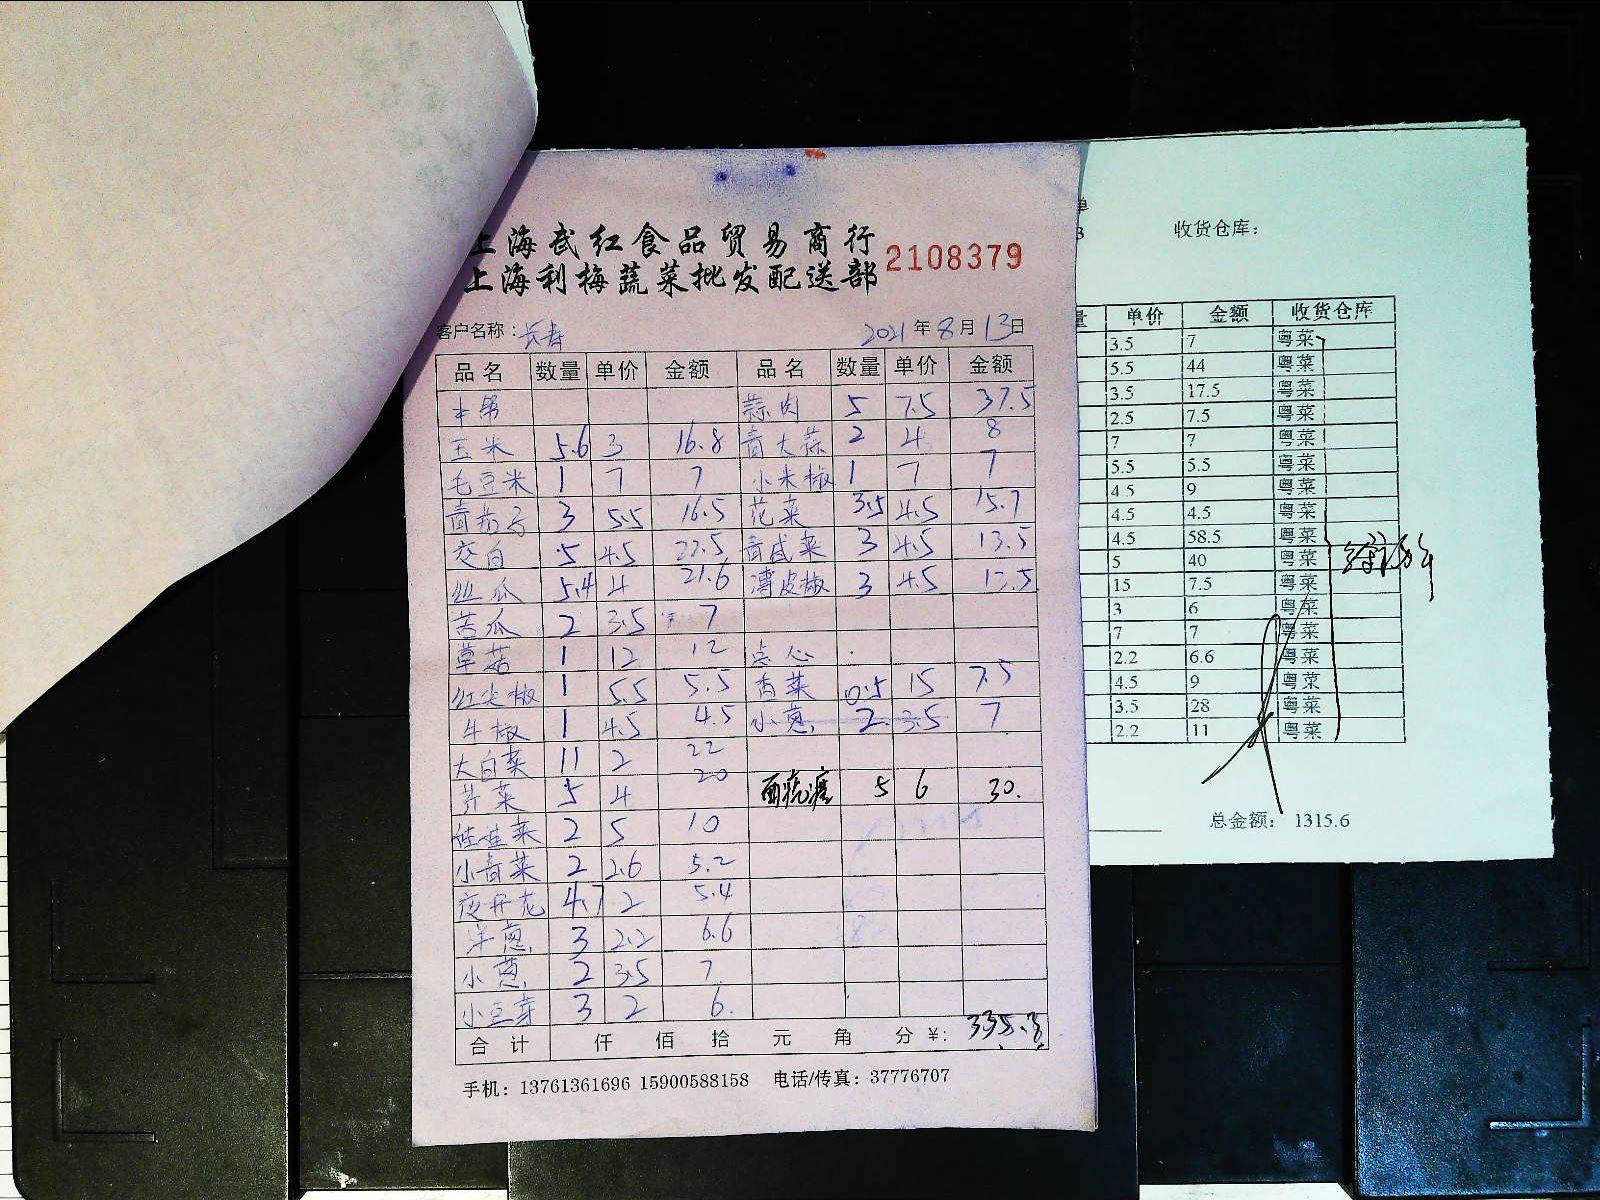 上海武红食品贸易商行
上海利梅蔬菜批发配送部
2108379
客户名称：长寿 2021年8月13日
品名 数量 单价 金额 品名 数量 单价 金额
本帮 蒜肉 5 7.5 37.5
玉米 5.6 3 16.8 青大蒜 2 4 8
毛豆米 1 7 7 小米椒 1 7 7
青茄子 3 5.5 16.5 花菜 3.5 4.5 15.7
交白 5 4.5 22.5 青咸菜 3 4.5 13.5
丝瓜 5.4 4 21.6 薄皮椒 3 4.5 13.5
苦瓜 2 3.5 7
草菇 1 12 12 点心
红尖椒 1 5.5 5.5 香菜 0.5 15 7.5
牛椒 1 4.5 4.5 小葱 2 3.5 7
大白菜 11 2 22
芹菜 5 4 20 面疙瘩 5 6 30.
娃娃菜 2 5 10
小青菜 2 2.6 5.2
夜开花 4.7 2 5.4
洋葱 3 2.2 6.6
小葱 2 3.5 7
小豆芽 3 2 6.
合计 仟 佰 拾 元 角 分 ¥: 335.3
手机：13761361696 15900588158 电话/传真：37776707
单
3 收货仓库：
量 单价 金额 收货仓库
3.5 7 粤菜
5.5 44 粤菜
3.5 17.5 粤菜
2.5 7.5 粤菜
7 7 粤菜
5.5 5.5 粤菜
4.5 9 粤菜
4.5 4.5 粤菜
4.5 58.5 粤菜
5 40 粤菜
15 7.5 粤菜
3 6 粤菜
7 7 粤菜
2.2 6.6 粤菜
4.5 9 粤菜
3.5 28 粤菜
2.2 11 粤菜
总金额： 1315.6